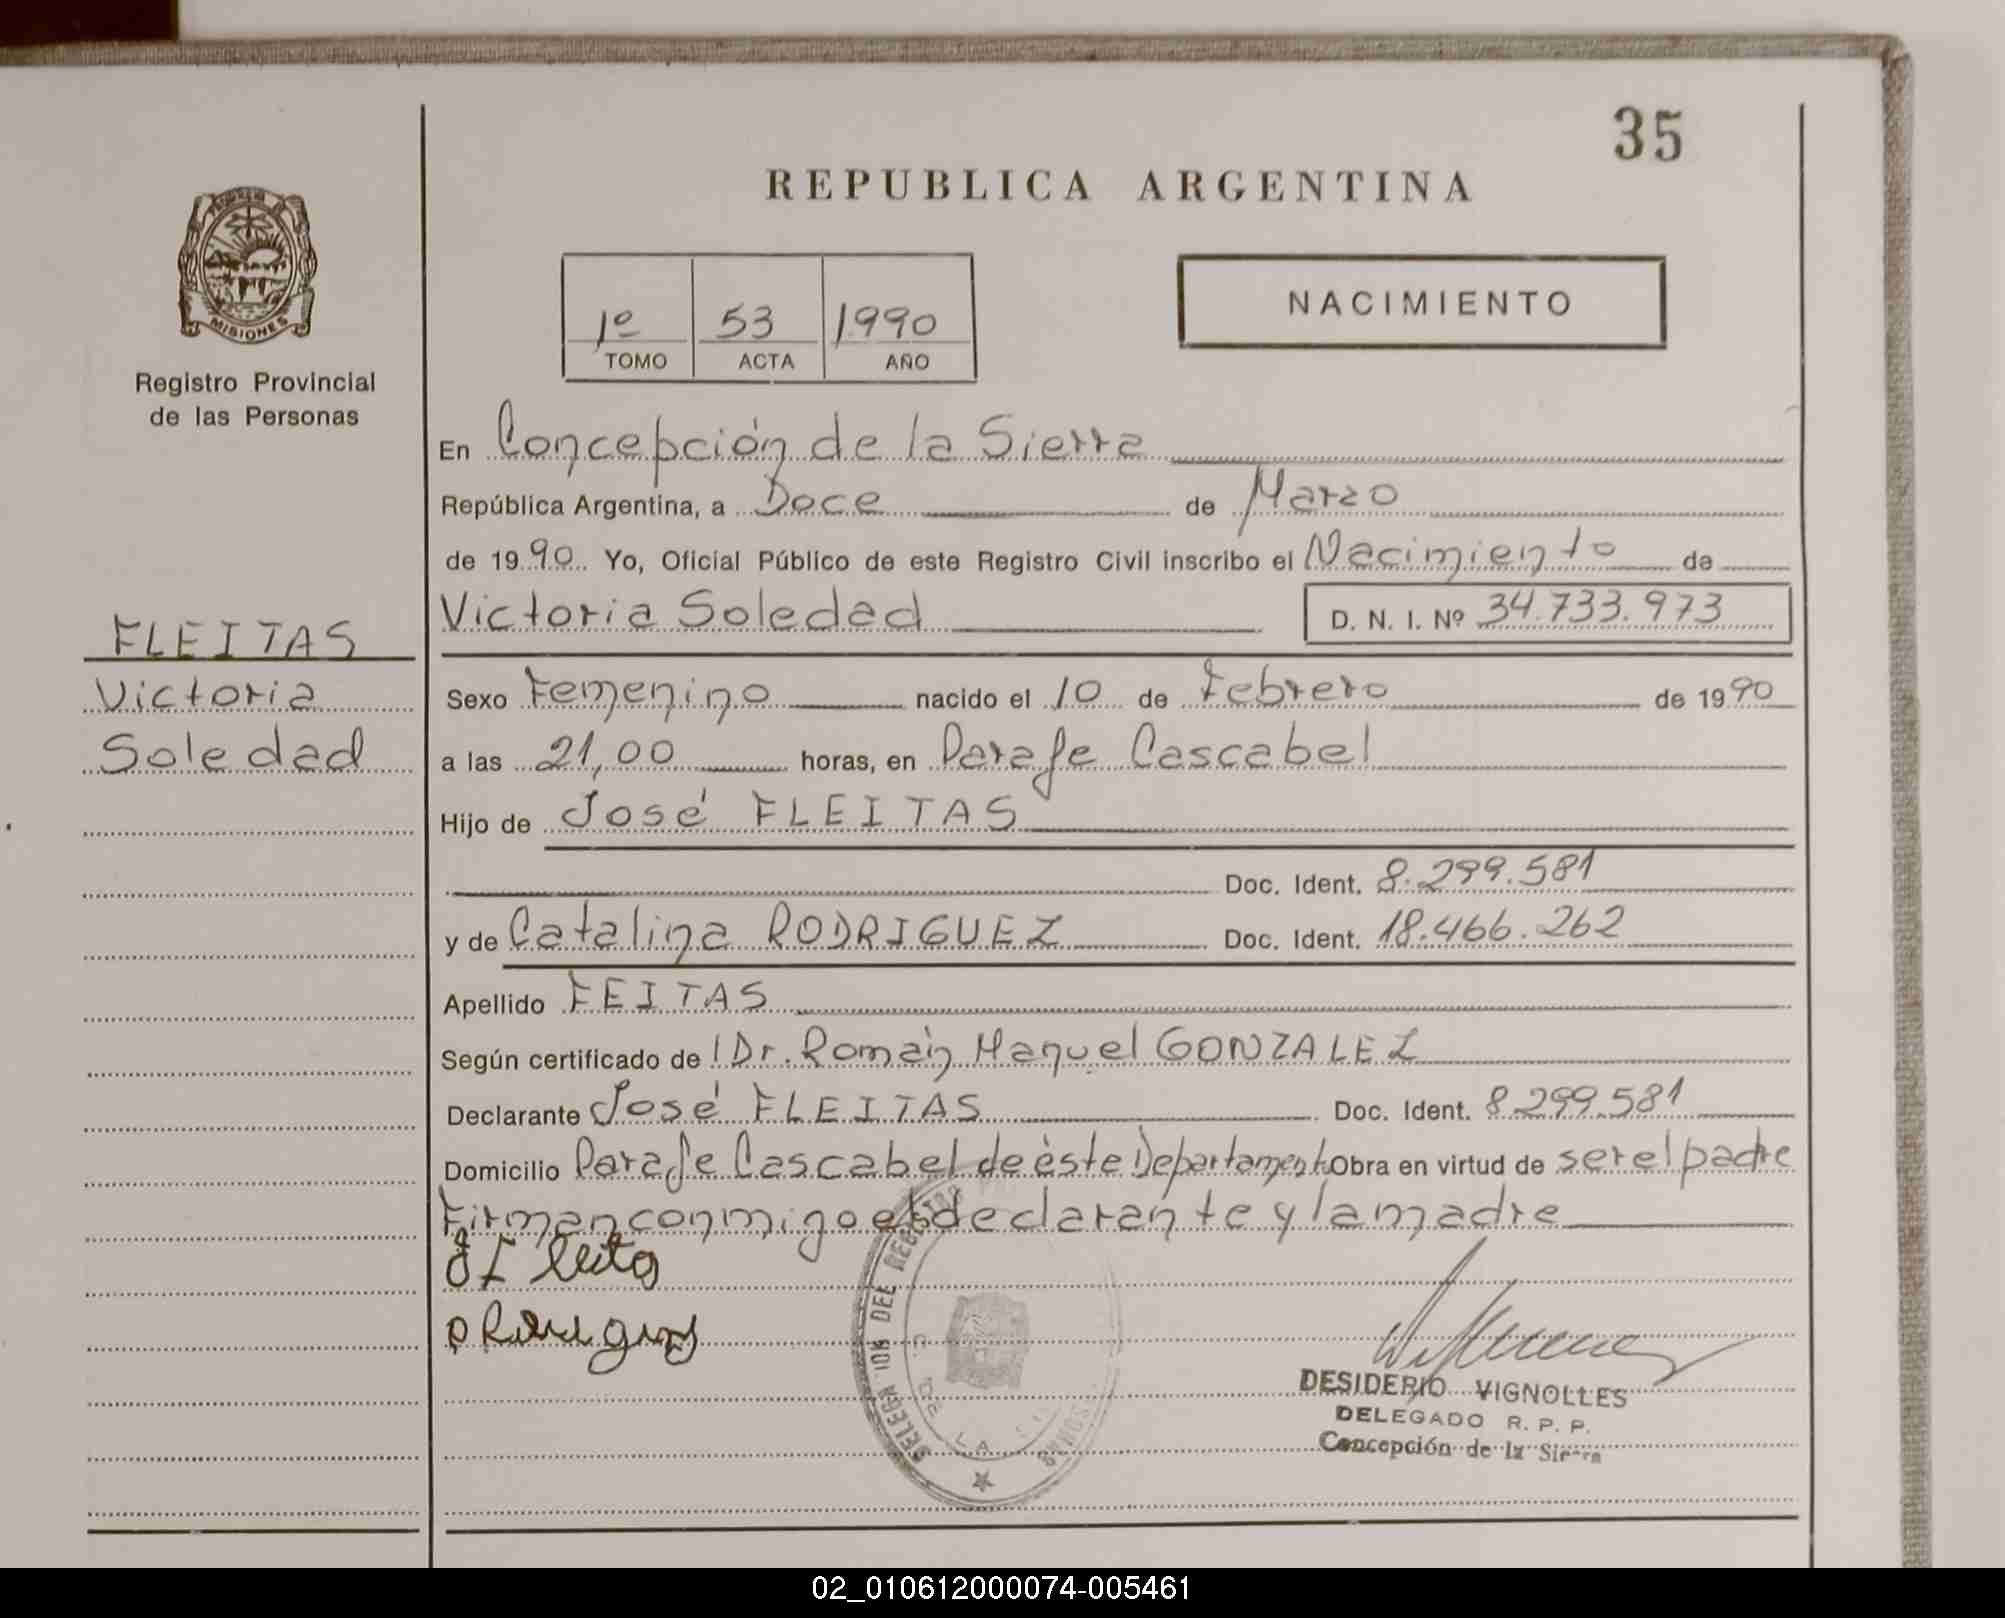 35
REPUBLICA ARGENTINA
MISIONES
Registro Provincial
de las Personas
1º 53 1990
TOMO ACTA AÑO
NACIMIENTO
En Concepción de la Sierra
República Argentina, a Doce de Marzo
de 1990. Yo, Oficial Público de este Registro Civil inscribo el Nacimiento de
Victoria Soledad D. N. I. Nº 34.733.973
FLEITAS
Victoria
Soledad
Sexo Femenino nacido el 10 de Febrero de 1990
a las 21,00 horas, en Paraje Cascabel
Hijo de José FLEITAS
Doc. Ident. 8.299.581
y de Catalina RODRIGUEZ Doc. Ident. 18.466.262
Apellido FEITAS
Según certificado de Dr. Román Manuel GONZALEZ
Declarante José FLEITAS Doc. Ident. 8.299.581
Domicilio Paraje Cascabel de èste Departamento Obra en virtud de ser el padre
Firman conmigo el declarante y la madre
DEL REGISTRO
DE LA
DESIDERIO VIGNOLLES
DELEGADO R. P. P.
Concepción de la Sierra
02_010612000074-005461